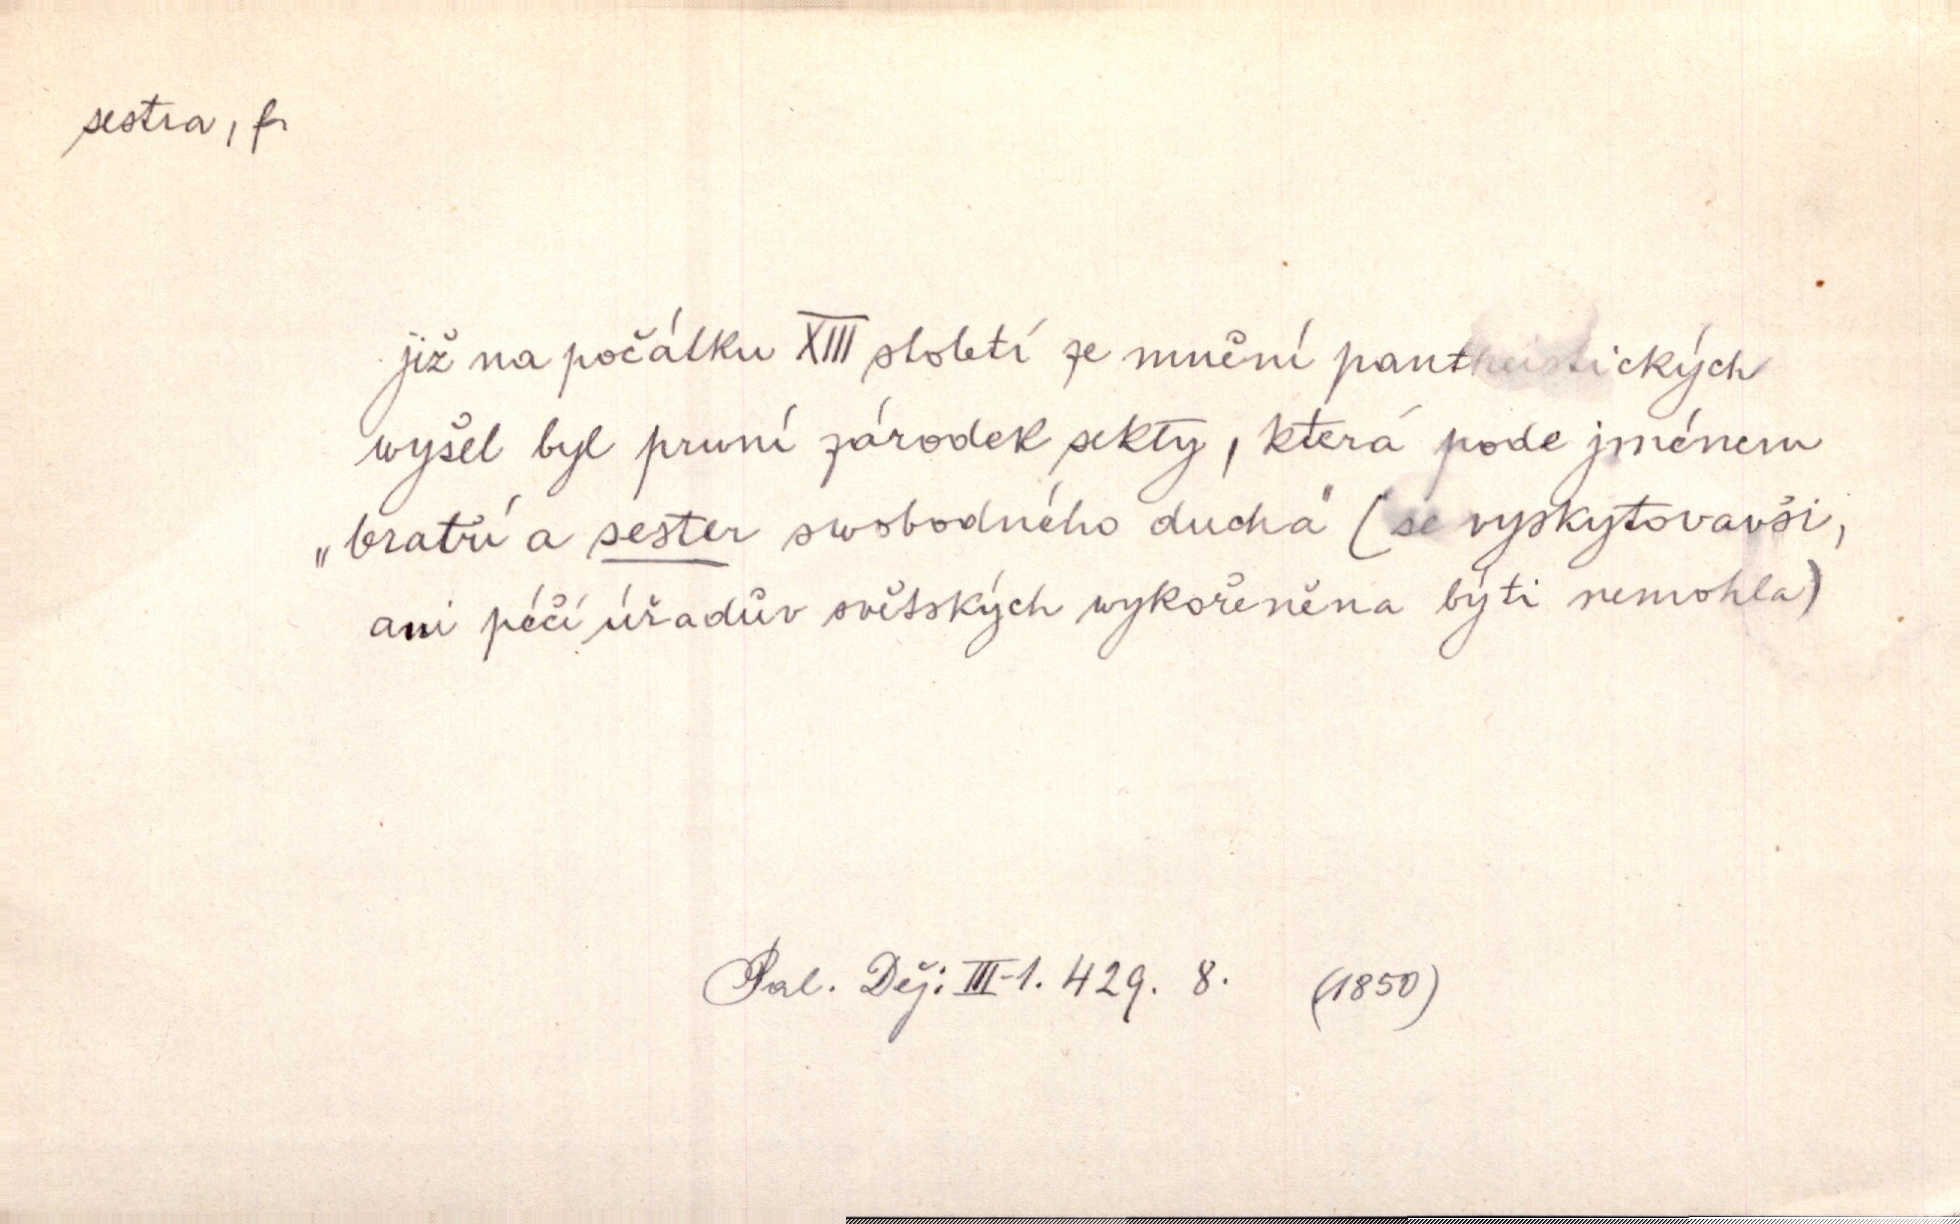 sestra, f.
již na počátku XIII století ze mnění pantheistických
wyšel byl první zárodek sekty, která pode jménem
„bratří a sester swobodného ducha" (se vyskytovavši,
ani péčí úřadův světských wykořeněna býti nemohla)
Pal. Děj. III-1. 429. 8. (1850)